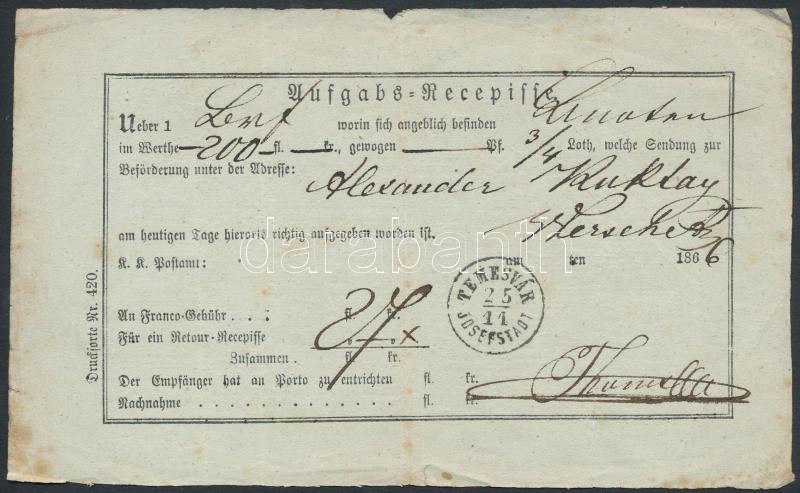 Aufgabs=Recepisse
Ueber 1 Brf worin sich angeblich befinden Bnoten
im Werthe —200— fl. — kr., gewogen — Pf. 3/4 Loth, welche Sendung zur
Beförderung unter der Adresse: Alexander
am heutigen Tage hierorts richtig aufgegeben worden ist.
K. K. Postamt: am ten 1866
TEMESVÁR
25
11
JOSEFSTADT
An Franco-Gebühr . . : fl. kr.
Für ein Retour-Recepisse
Zusammen . fl. kr.
27 x
Der Empfänger hat an Porto zu entrichten fl. kr.
Nachnahme . . . . . . . . . . . . fl. kr.
Drucksorte Nr. 420.
darabanth